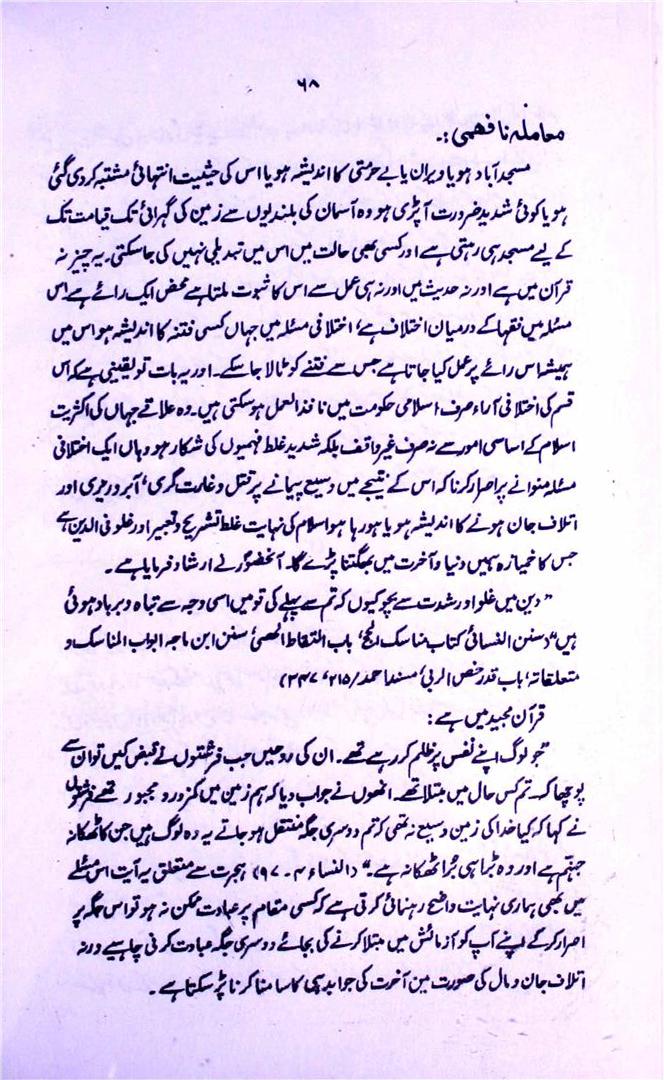 ۶۸
معاملہ نافہمی :۔
مسجد آباد ہو یا ویران یا بے حرمتی کا اندیشہ ہو یا اس کی حیثیت انتہائی مشتبہ کر دی گئی
ہو یا کوئی شدید ضرورت آپڑی ہو وہ آسمان کی بلندیوں سے زمین کی گہرائی تک قیامت تک
کے لیے مسجد ہی رہتی ہے اور کسی بھی حالت میں اس میں تبدیلی نہیں کی جاسکتی۔ یہ چیز نہ
قرآن میں ہے اور نہ حدیث میں اور نہ ہی عمل سے اس کا ثبوت ملتا ہے محض ایک رائے ہے اس
مسئلہ میں فقہا کے درمیان اختلاف ہے، اختلافی مسئلہ میں جہاں کسی فتنہ کا اندیشہ ہو اس میں
ہمیشہ اس رائے پر عمل کیا جاتا ہے جس سے فتنے کو ٹالا جاسکے۔ اور یہ بات تو یقینی ہے کہ اس
قسم کی اختلافی آراء صرف اسلامی حکومت میں نافذ العمل ہوسکتی ہیں۔ وہ علاقے جہاں کی اکثریت
اسلام کے اساسی امور سے نہ صرف غیر واقف بلکہ شدید غلط فہمیوں کی شکار ہو وہاں ایک اختلافی
مسئلہ منوانے پر اصرار کرنا کہ اس کے نتیجے میں وسیع پیمانے پر قتل و غارت گری، آبرو ریزی اور
اتلاف جان ہونے کا اندیشہ ہو یا ہو رہا ہو اسلام کی نہایت غلط تشریح و تعبیر اور غلو فی الدین ہے
جس کا خمیازہ ہمیں دنیا و آخرت میں بھگتنا پڑے گا۔ آنحضورؐ نے ارشاد فرمایا ہے۔
”دین میں غلو اور شدت سے بچو کیوں کہ تم سے پہلے کی قومیں اسی وجہ سے تباہ و برباد ہوئی
ہیں“ (سنن النسائی کتاب مناسک الحج، باب التقاط الحصیٰ، سنن ابن ماجہ ابواب المناسک و
متعلقاتہ، باب قدر حصی الرمی، مسند احمد /۲۱۵، ۳۴۷)
قرآن مجید میں ہے :
”جو لوگ اپنے نفس پر ظلم کر رہے تھے۔ ان کی روحیں جب فرشتوں نے قبض کیں تو ان سے
پوچھا کہ تم کس حال میں مبتلا تھے۔ انھوں نے جواب دیا کہ ہم زمین میں کمزور و مجبور تھے فرشتوں
نے کہا کہ کیا خدا کی زمین وسیع نہ تھی کہ تم دوسری جگہ منتقل ہو جاتے یہ وہ لوگ ہیں جن کا ٹھکانہ
جہنم ہے اور وہ بڑا ہی بُرا ٹھکانہ ہے۔“ (النساء ۴ - ۹۷) ہجرت سے متعلق یہ آیت اس مسئلے
میں بھی ہماری نہایت واضح رہنمائی کرتی ہے کہ کسی مقام پر عبادت ممکن نہ ہو تو اس جگہ پر
اصرار کر کے اپنے آپ کو آزمائش میں مبتلا کرنے کی بجائے دوسری جگہ عبادت کرنی چاہیے ورنہ
اتلاف جان و مال کی صورت میں آخرت کی جوابدہی کا سامنا کرنا پڑ سکتا ہے۔